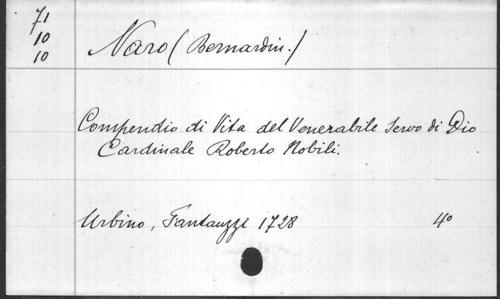 71
10
10
Naro (Bernardin.)
Compendio di Vita del Venerabile Servo di Dio
Cardinale Roberto Nobili.
Urbino, Fantauzzi 1728 4º